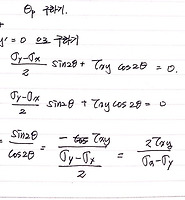 θp 구하기.
y' = 0 으로 구하기
(σy-σx)/2 sin2θ + τxy cos2θ = 0.
(σy-σx)/2 sin2θ + τxy cos2θ = 0
= sin2θ/cos2θ = -τxy/((σy-σx)/2) = 2τxy/(σx-σy)